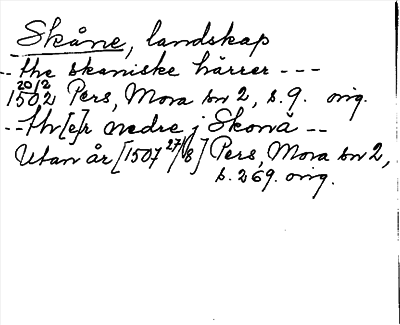 Skåne, landskap
-- the skaniske härrer ---
20/2
1502 Pers, Mora bn 2, s. 9. orig.
-- thr[e]r nedre j Skonä --
Utan år [1507 27/8] Pers, Mora bn 2,
s. 269. orig.